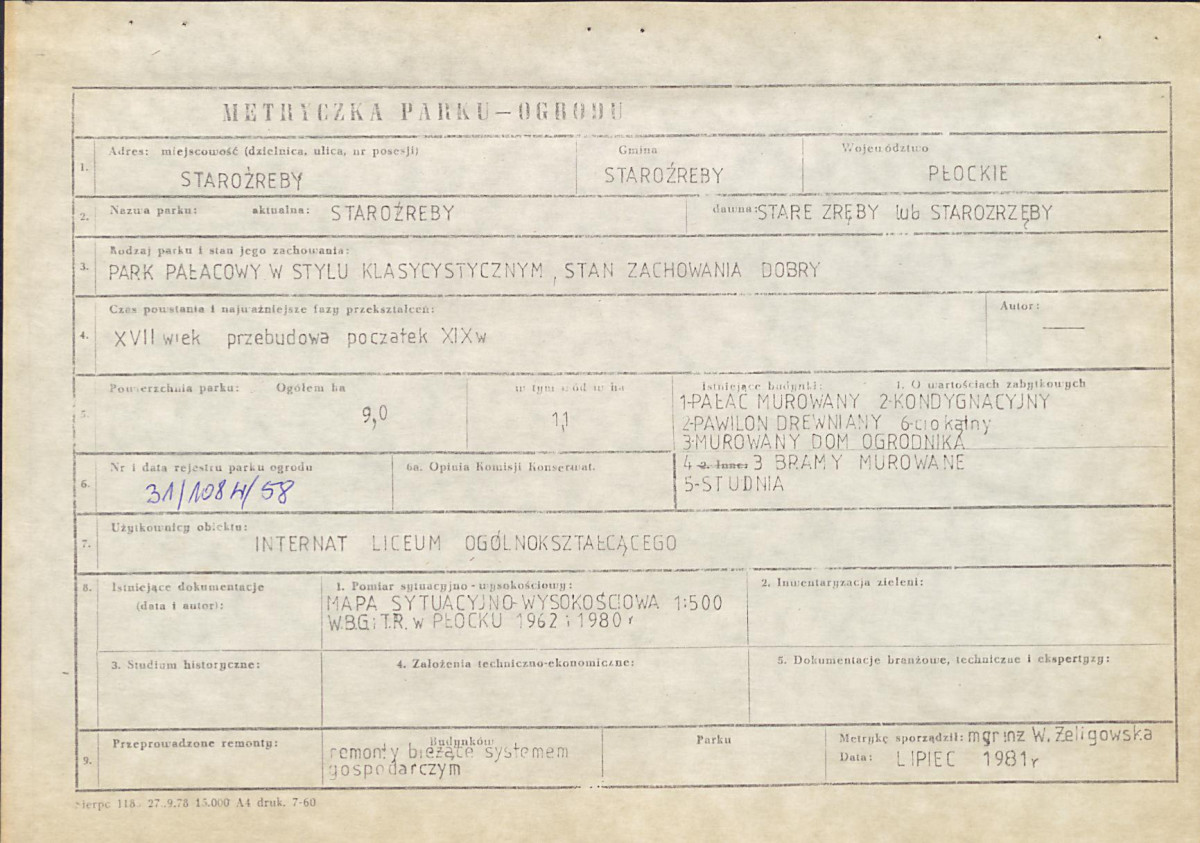 METRYCZKA PARKU – OGRODU
1. Adres: miejscowość (dzielnica, ulica, nr posesji)
STAROŹREBY
Gmina
STAROŹREBY
Województwo
PŁOCKIE
2. Nazwa parku: aktualna: STAROŹREBY
dawna: STARE ZRĘBY lub STAROZRZĘBY
3. Rodzaj parku i stan jego zachowania:
PARK PAŁACOWY W STYLU KLASYCYSTYCZNYM, STAN ZACHOWANIA DOBRY
4. Czas powstania i najważniejsze fazy przekształceń:
XVII wiek przebudowa początek XIX w
Autor:
—
5. Powierzchnia parku: Ogółem ha
9,0
w tym wód w ha
1,1
Istniejące budynki: 1. O wartościach zabytkowych
1-PAŁAC MUROWANY 2-KONDYGNACYJNY
2-PAWILON DREWNIANY 6-ciokątny
3-MUROWANY DOM OGRODNIKA
4 2. Inne: 3 BRAMY MUROWANE
5-STUDNIA
6. Nr i data rejestru parku ogrodu
31/1084/58
6a. Opinia Komisji Konserwat.
7. Użytkownicy obiektu:
INTERNAT LICEUM OGÓLNOKSZTAŁCĄCEGO
8. Istniejące dokumentacje
(data i autor):
1. Pomiar sytuacyjno-wysokościowy:
MAPA SYTUACYJNO-WYSOKOŚCIOWA 1:500
W.B.G i T.R. w PŁOCKU 1962 i 1980 r
2. Inwentaryzacja zieleni:
3. Studium historyczne:
4. Założenia techniczno-ekonomiczne:
5. Dokumentacje branżowe, techniczne i ekspertyzy:
9. Przeprowadzone remonty:
Budynków
remonty bieżące systemem
gospodarczym
Parku
Metrykę sporządził: mgr inż W. Żeligowska
Data: LIPIEC 1981 r
Sierpc 118 27.9.78 15.000 A4 druk. 7-60